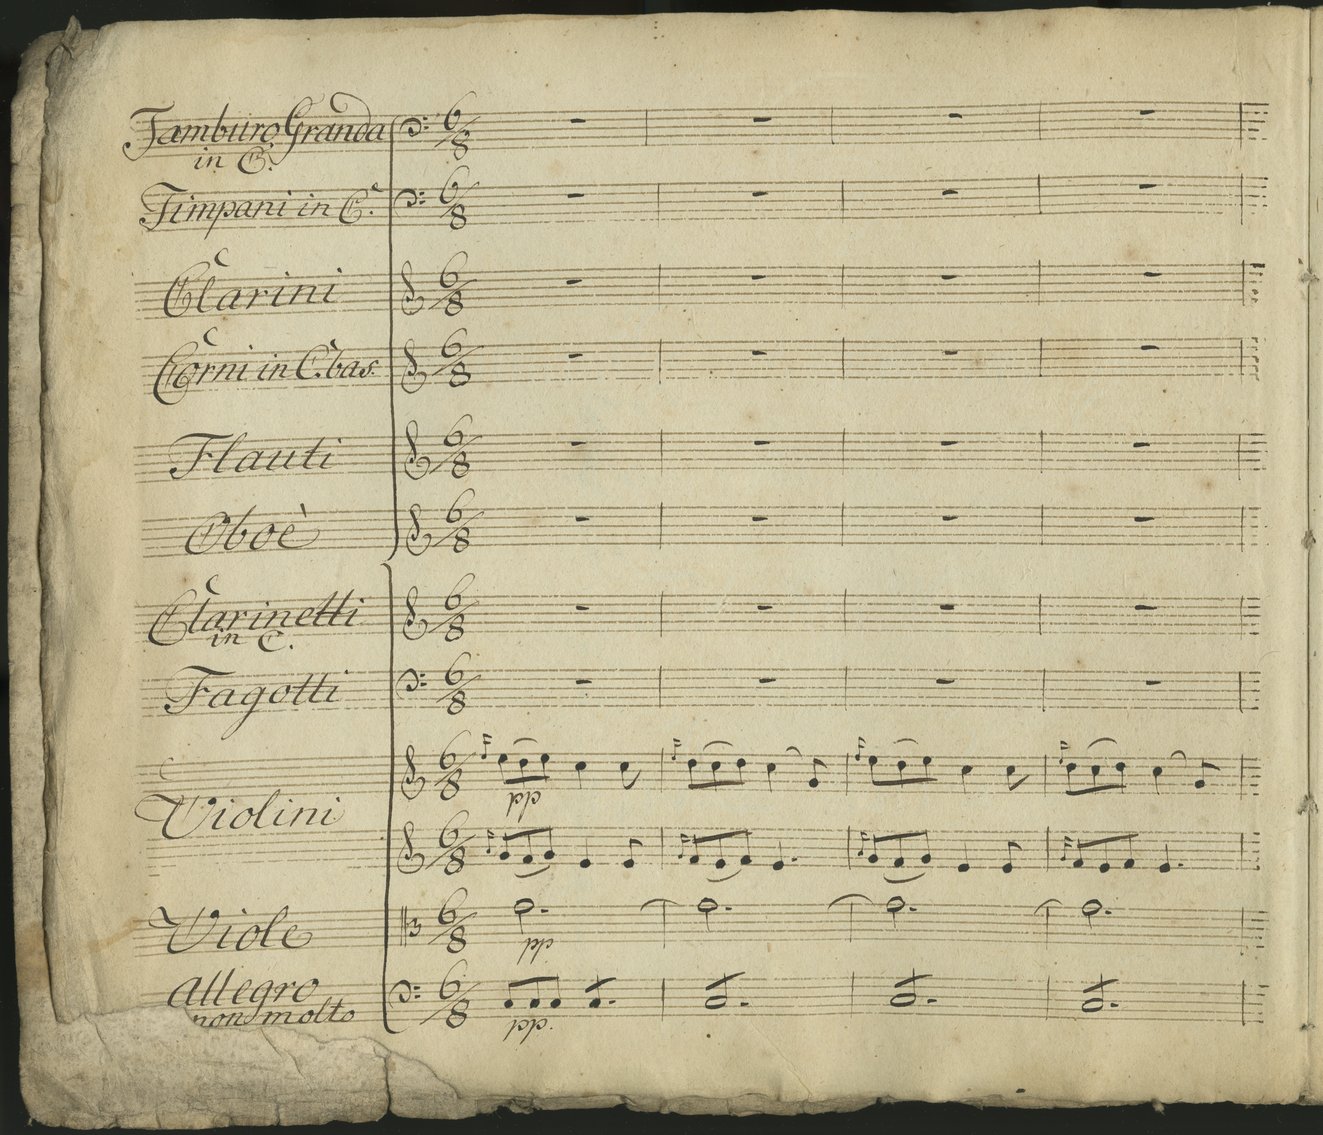 Tamburo Granda
in G.
Timpani in C.
Clarini
Corni in C. bas.
Flauti
Oboè
Clarinetti
in C.
Fagotti
Violini
Viole
Allegro
non molto
6/8
6/8
6/8
6/8
6/8
6/8
6/8
6/8
6/8
pp
6/8
6/8
pp
6/8
pp